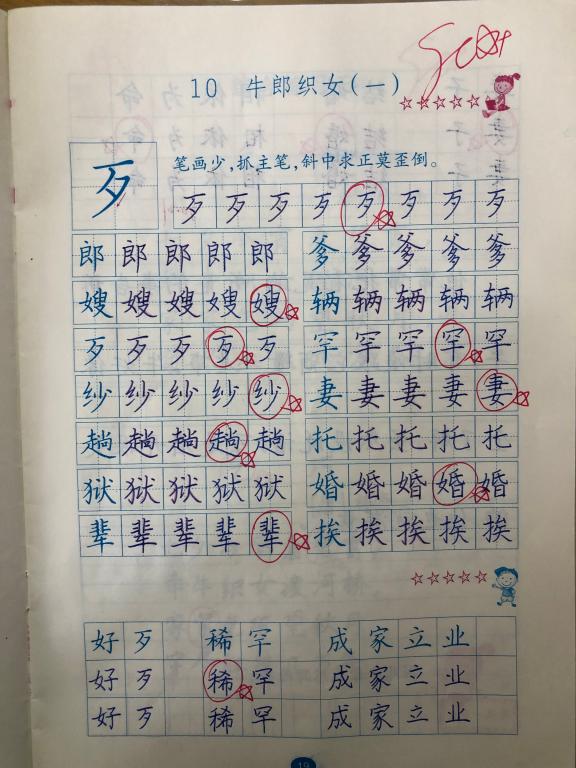 10 牛郎织女(一)
笔画少,抓主笔,斜中求正莫歪倒。
歹 歹 歹 歹 歹 歹 歹 歹
郎 郎 郎 郎 郎 爹 爹 爹 爹 爹
嫂 嫂 嫂 嫂 嫂 辆 辆 辆 辆 辆
歹 歹 歹 歹 歹 罕 罕 罕 罕 罕
纱 纱 纱 纱 纱 妻 妻 妻 妻 妻
趟 趟 趟 趟 趟 托 托 托 托 托
狱 狱 狱 狱 狱 婚 婚 婚 婚 婚
辈 辈 辈 辈 辈 挨 挨 挨 挨 挨
好 歹 稀 罕 成 家 立 业
好 歹 稀 罕 成 家 立 业
好 歹 稀 罕 成 家 立 业
19